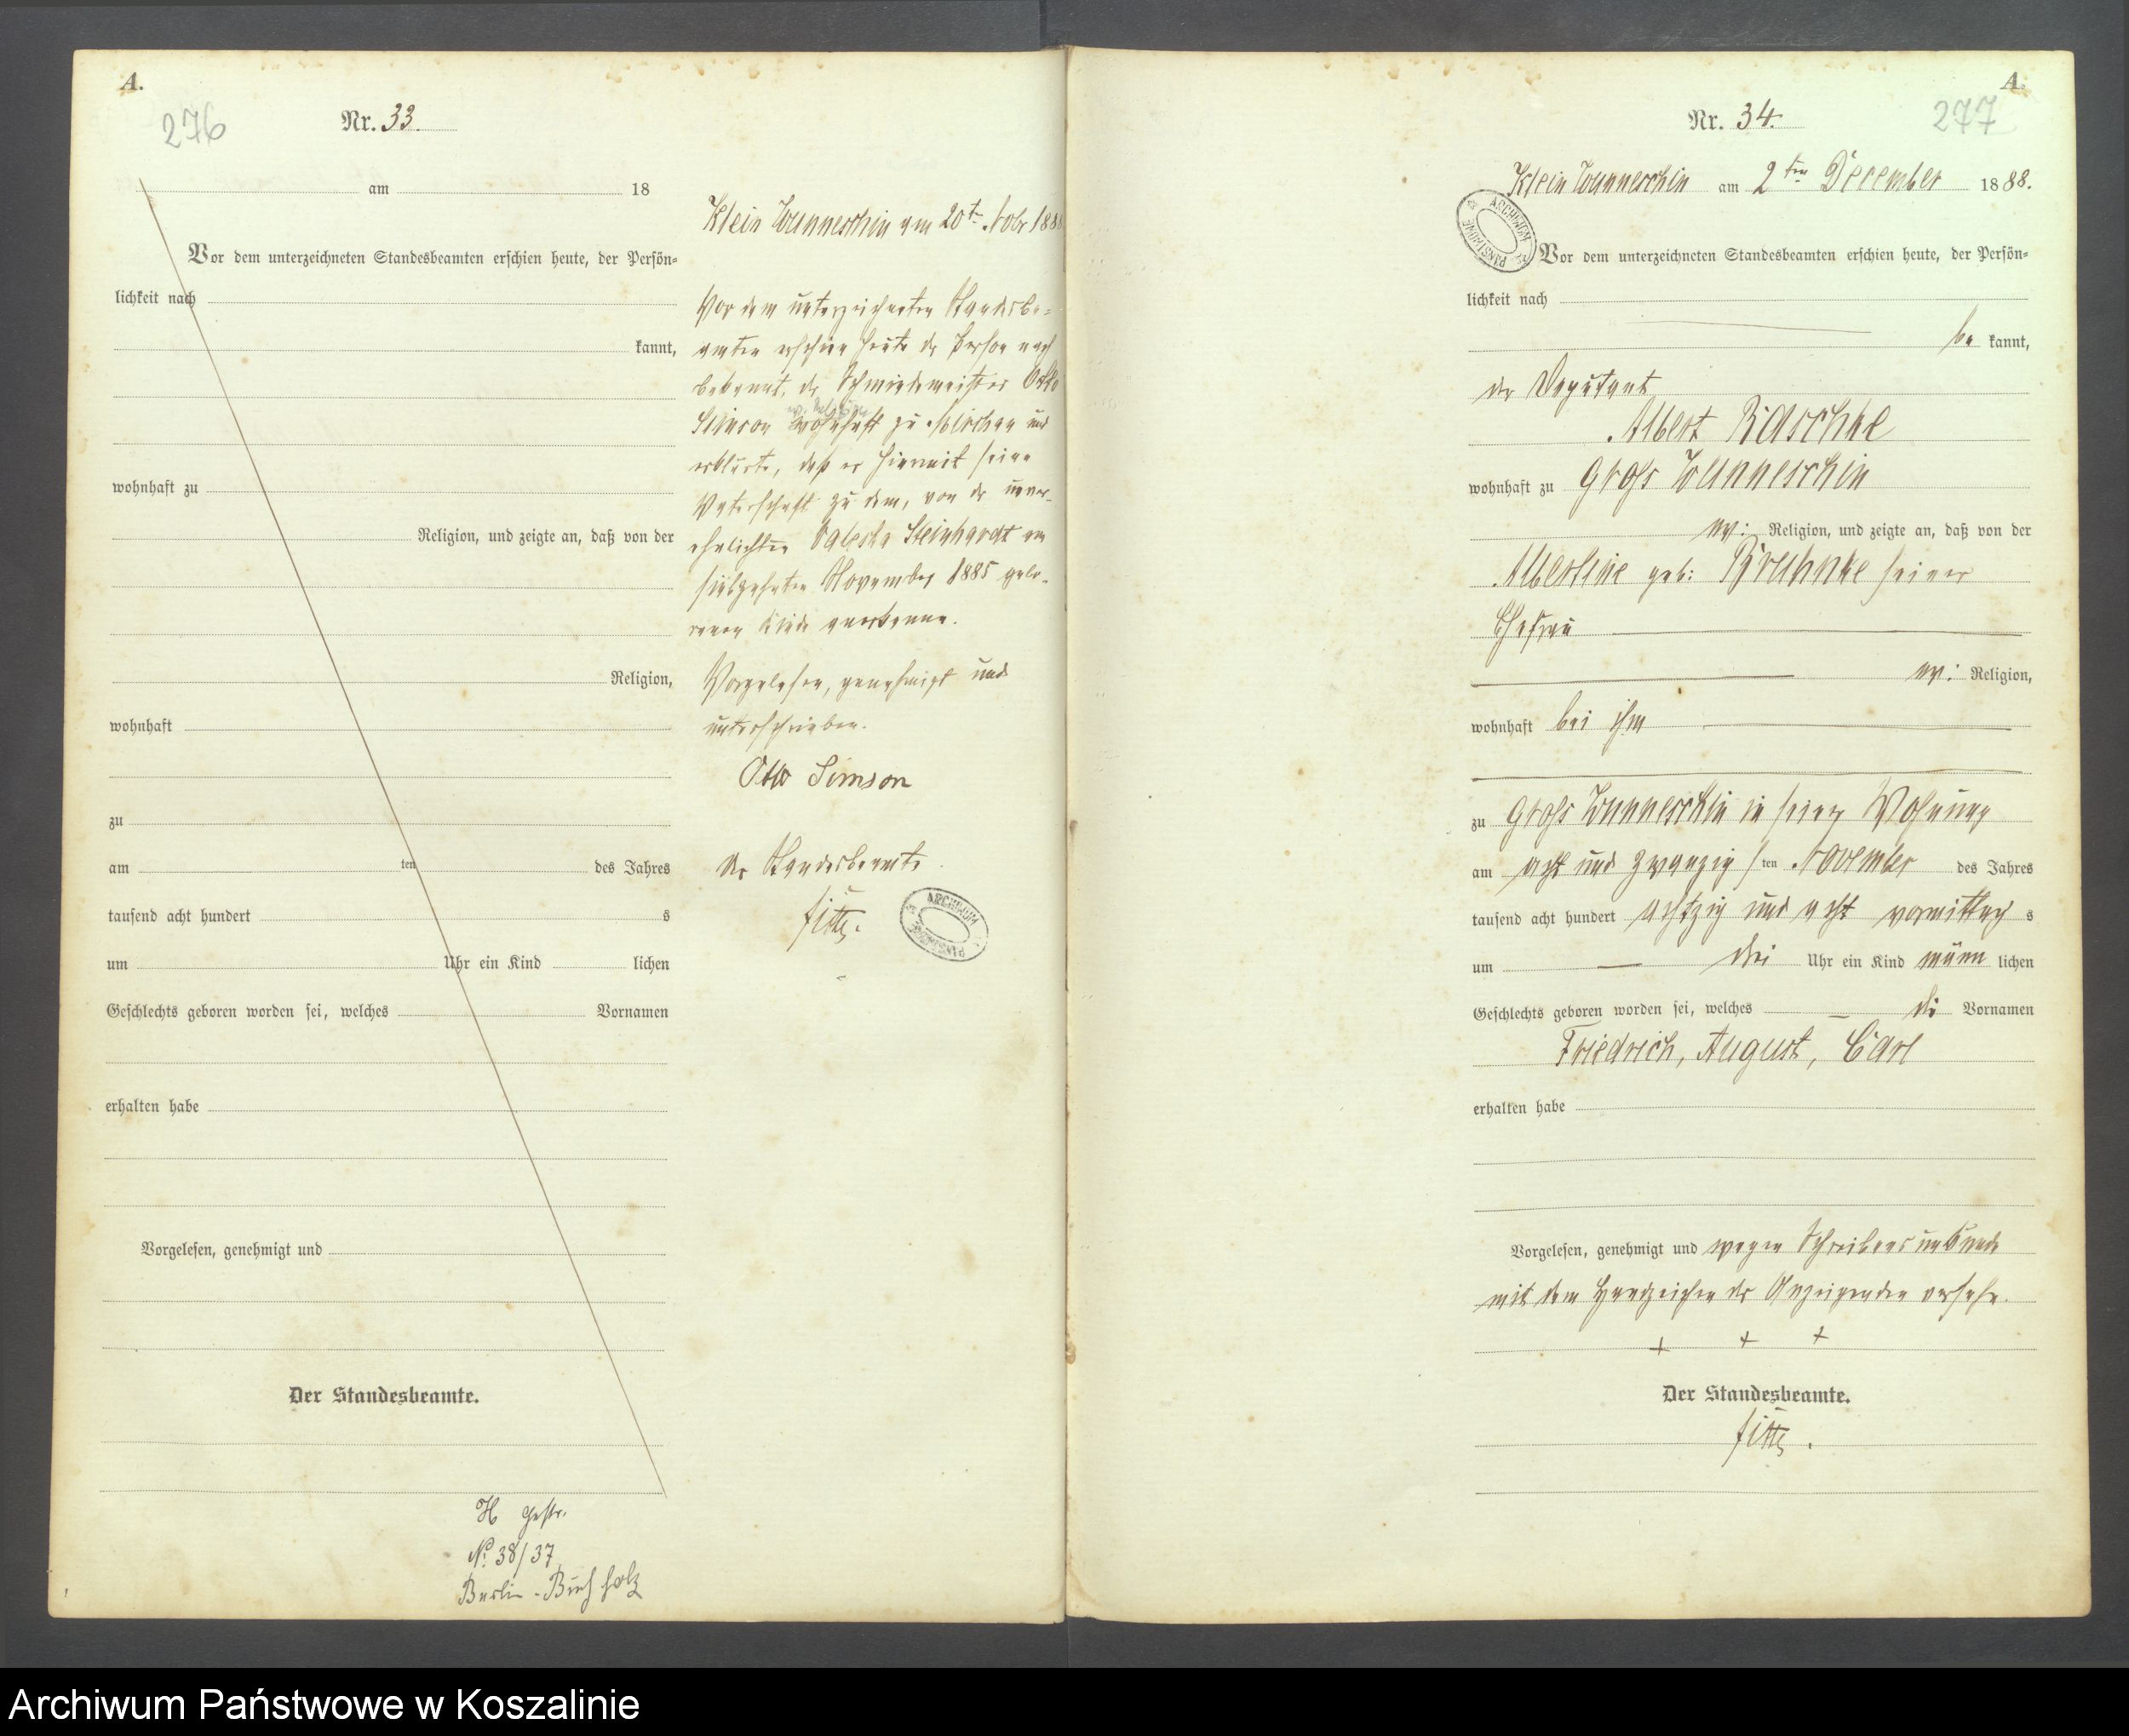 A.
276
Nr. 33.
am 18
Vor dem unterzeichneten Standesbeamten erschien heute, der Persön=
lichkeit nach
kannt,
wohnhaft zu
Religion, und zeigte an, daß von der
Religion,
wohnhaft
zu
am ten des Jahres
tausend acht hundert s
um Uhr ein Kind lichen
Geschlechts geboren worden sei, welches Vornamen
erhalten habe
Vorgelesen, genehmigt und
Der Standesbeamte.
H gestr.
No: 38/37
Berlin-Buchholz
Klein Wunneschin am 20t Nobr 188
Vor dem unterzeichneten Standesbe=
amten erschien heute der Person nach
bekannt, der Schmiedemeister Otto
Simson wohnhaft zu und
erklärte, daß er hiermit seine
Vaterschaft zu dem, von der unver-
ehelichten Valeska Steinhardt am
November 1885 gebo-
renen Kinde anerkenne.
Vorgelesen, genehmigt und
unterschrieben.
Otto Simson
Der Standesbeamte
ARCHIWUM PAŃSTWOWE
A.
277
Nr. 34.
Klein Wunneschin am 2ten December 1888.
ARCHIWUM PAŃSTWOWE
Vor dem unterzeichneten Standesbeamten erschien heute, der Persön=
lichkeit nach
be kannt,
der Deputant
Albert Raschke
wohnhaft zu Groß Wunneschin
ev: Religion, und zeigte an, daß von der
Albertine geb: seiner
Ehefrau
ev: Religion,
wohnhaft bei ihm
zu Groß Wunneschin in seiner Wohnung
am acht und zwanzig s ten November des Jahres
tausend acht hundert achtzig und acht vormittag s
um drei Uhr ein Kind männ lichen
Geschlechts geboren worden sei, welches die Vornamen
Friedrich, August, Carl
erhalten habe
Vorgelesen, genehmigt und wegen Schreibens unkunde
mit dem Handzeichen des Anzeigenden versehn.
+ + +
Der Standesbeamte.
Archiwum Państwowe w Koszalinie